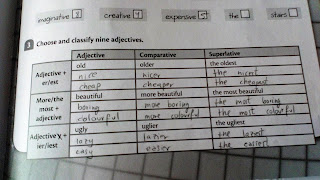 imaginative 2 creative 4 expensive 5 the stars
3 Choose and classify nine adjectives.
Adjective Comparative Superlative
Adjective + er/est
old older the oldest
nice nicer the nicest
cheap cheaper the cheapest
More/the most + adjective
beautiful more beautiful the most beautiful
boring more boring the most boring
colourful more colourful the most colourful
Adjective y, + ier/iest
ugly uglier the ugliest
lazy lazier the laziest
easy easer the easiest